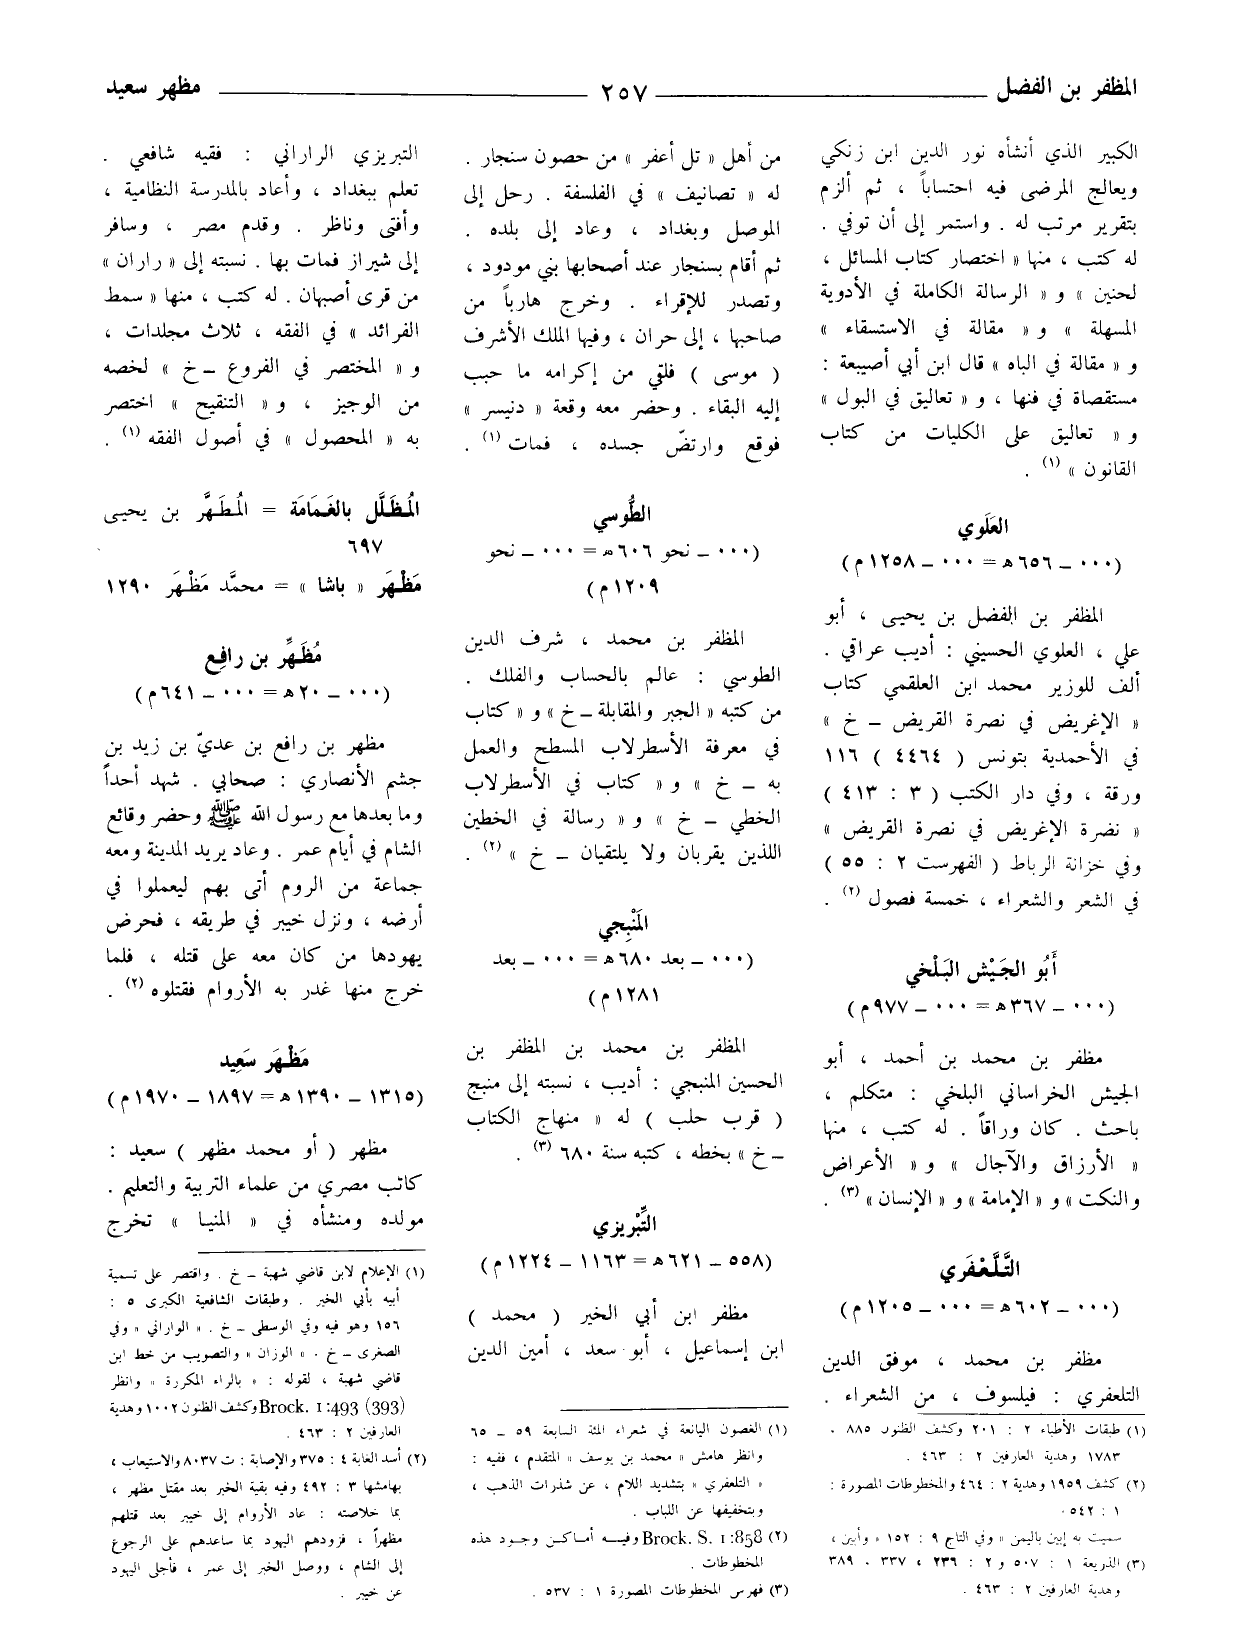 المظفر بن الفضل ٢٥٧ مظهر سعيد
الكبير الذي أنشأه نور الدين ابن زنكي
ويعالج المرضى فيه احتساباً ، ثم ألزم
بتقرير مرتب له . واستمر إلى أن توفي .
له كتب ، منها « اختصار كتاب المسائل ،
لحنين » و « الرسالة الكاملة في الأدوية
المسهلة » و « مقالة في الاستسقاء »
و « مقالة في الباه » قال ابن أبي أصيبعة :
مستقصاة في فنها ، و « تعاليق في البول »
و « تعاليق على الكليات من كتاب
القانون » (١) .
العَلَوي
(٠٠٠ – ٦٥٦ ه = ٠٠٠ – ١٢٥٨ م)
المظفر بن الفضل بن يحيى ، أبو
علي ، العلوي الحسيني : أديب عراقي .
ألف للوزير محمد ابن العلقمي كتاب
« الإغريض في نصرة القريض – خ »
في الأحمدية بتونس ( ٤٤٦٤ ) ١١٦
ورقة ، وفي دار الكتب ( ٣ : ٤١٣ )
« نضرة الإغريض في نصرة القريض »
وفي خزانة الرباط ( الفهرست ٢ : ٥٥ )
في الشعر والشعراء ، خمسة فصول (٢) .
أَبُو الجَيْش البَلْخي
(٠٠٠ – ٣٦٧ ه = ٠٠٠ – ٩٧٧ م)
مظفر بن محمد بن أحمد ، أبو
الجيش الخراساني البلخي : متكلم ،
باحث . كان وراقاً . له كتب ، منها
« الأرزاق والآجال » و « الأعراض
والنكت » و « الإمامة » و « الإنسان » (٣) .
التَّلَّعْفَري
(٠٠٠ – ٦٠٢ ه = ٠٠٠ – ١٢٠٥ م)
مظفر بن محمد ، موفق الدين
التلعفري : فيلسوف ، من الشعراء .
(١) طبقات الأطباء ٢ : ٢٠١ وكشف الظنون ٨٨٥ ،
١٧٨٣ وهدية العارفين ٢ : ٤٦٣ .
(٢) كشف ١٩٥٩ وهدية ٢ : ٤٦٤ والمخطوطات المصورة :
١ : ٥٤٢ .
سميت به إبين باليمن » وفي التاج ٩ : ١٥٢ « وأبين ،
(٣) الذريعة ١ : ٥٠٧ و ٢ : ٢٣٦ ، ٣٣٧ ، ٣٨٩
وهدية العارفين ٢ : ٤٦٣ .
من أهل « تل أعفر » من حصون سنجار .
له « تصانيف » في الفلسفة . رحل إلى
الموصل وبغداد ، وعاد إلى بلده .
ثم أقام بسنجار عند أصحابها بني مودود ،
وتصدر للإقراء . وخرج هارباً من
صاحبها ، إلى حران ، وفيها الملك الأشرف
( موسى ) فلقي من إكرامه ما حبب
إليه البقاء . وحضر معه وقعة « دنيسر »
فوقع وارتضّ جسده ، فمات (١) .
الطُّوسي
(٠٠٠ – نحو ٦٠٦ ه = ٠٠٠ – نحو
١٢٠٩ م)
المظفر بن محمد ، شرف الدين
الطوسي : عالم بالحساب والفلك .
من كتبه « الجبر والمقابلة – خ » و « كتاب
في معرفة الأسطرلاب المسطح والعمل
به – خ » و « كتاب في الأسطرلاب
الخطي – خ » و « رسالة في الخطين
اللذين يقربان ولا يلتقيان – خ » (٢) .
المَنْبِجي
(٠٠٠ – بعد ٦٨٠ ه = ٠٠٠ – بعد
١٢٨١ م)
المظفر بن محمد بن المظفر بن
الحسين المنبجي : أديب ، نسبته إلى منبج
( قرب حلب ) له « منهاج الكتاب
– خ » بخطه ، كتبه سنة ٦٨٠ (٣) .
التِّبْريزي
(٥٥٨ – ٦٢١ ه = ١١٦٣ – ١٢٢٤ م)
مظفر ابن أبي الخير ( محمد )
ابن إسماعيل ، أبو سعد ، أمين الدين
(١) الغصون اليانعة في شعراء المئة السابعة ٥٩ – ٦٥
وانظر هامش « محمد بن يوسف » المتقدم ، ففيه :
« التلعفري » بتشديد اللام ، عن شذرات الذهب ،
وبتخفيفها عن اللباب .
(٢) Brock. S. 1:858 وفيه أماكن وجود هذه
المخطوطات .
(٣) فهرس المخطوطات المصورة ١ : ٥٣٧ .
التبريزي الراراني : فقيه شافعي .
تعلم ببغداد ، وأعاد بالمدرسة النظامية ،
وأفتى وناظر . وقدم مصر ، وسافر
إلى شيراز فمات بها . نسبته إلى « راران »
من قرى أصبهان . له كتب ، منها « سمط
الفرائد » في الفقه ، ثلاث مجلدات ،
و « المختصر في الفروع – خ » لخصه
من الوجيز ، و « التنقيح » اختصر
به « المحصول » في أصول الفقه (١) .
المُظَلَّل بالغَمَامَة = المُطَهَّر بن يحيى
٦٩٧
مَظْهَر « باشا » = محمَّد مَظْهَر ١٢٩٠
مُظَهِّر بن رافع
(٠٠٠ – ٢٠ ه = ٠٠٠ – ٦٤١ م)
مظهر بن رافع بن عديّ بن زيد بن
جشم الأنصاري : صحابي . شهد أحداً
وما بعدها مع رسول الله ﷺ وحضر وقائع
الشام في أيام عمر . وعاد يريد المدينة ومعه
جماعة من الروم أتى بهم ليعملوا في
أرضه ، ونزل خيبر في طريقه ، فحرض
يهودها من كان معه على قتله ، فلما
خرج منها غدر به الأروام فقتلوه (٢) .
مَظْهَر سَعِيد
(١٣١٥ – ١٣٩٠ ه = ١٨٩٧ – ١٩٧٠ م)
مظهر ( أو محمد مظهر ) سعيد :
كاتب مصري من علماء التربية والتعليم .
مولده ومنشأه في « المنيا » تخرج
(١) الإعلام لابن قاضي شهبة – خ . واقتصر على تسمية
أبيه بأبي الخير . وطبقات الشافعية الكبرى ٥ :
١٥٦ وهو فيه وفي الوسطى – خ . « الواراني » وفي
الصغرى – خ . « الوزان » والتصويب من خط ابن
قاضي شهبة ، لقوله : « بالراء المكررة » وانظر
Brock. 1:493 (393) وكشف الظنون ١٠٠٢ وهدية
العارفين ٢ : ٤٦٣ .
(٢) أسد الغابة ٤ : ٣٧٥ والإصابة : ت ٨٠٣٧ والاستيعاب ،
بهامشها ٣ : ٤٩٢ وفيه بقية الخبر بعد مقتل مظهر ،
بما خلاصته : عاد الأروام إلى خيبر بعد قتلهم
مظهراً ، فزودهم اليهود بما ساعدهم على الرجوع
إلى الشام ، ووصل الخبر إلى عمر ، فأجلى اليهود
عن خيبر .